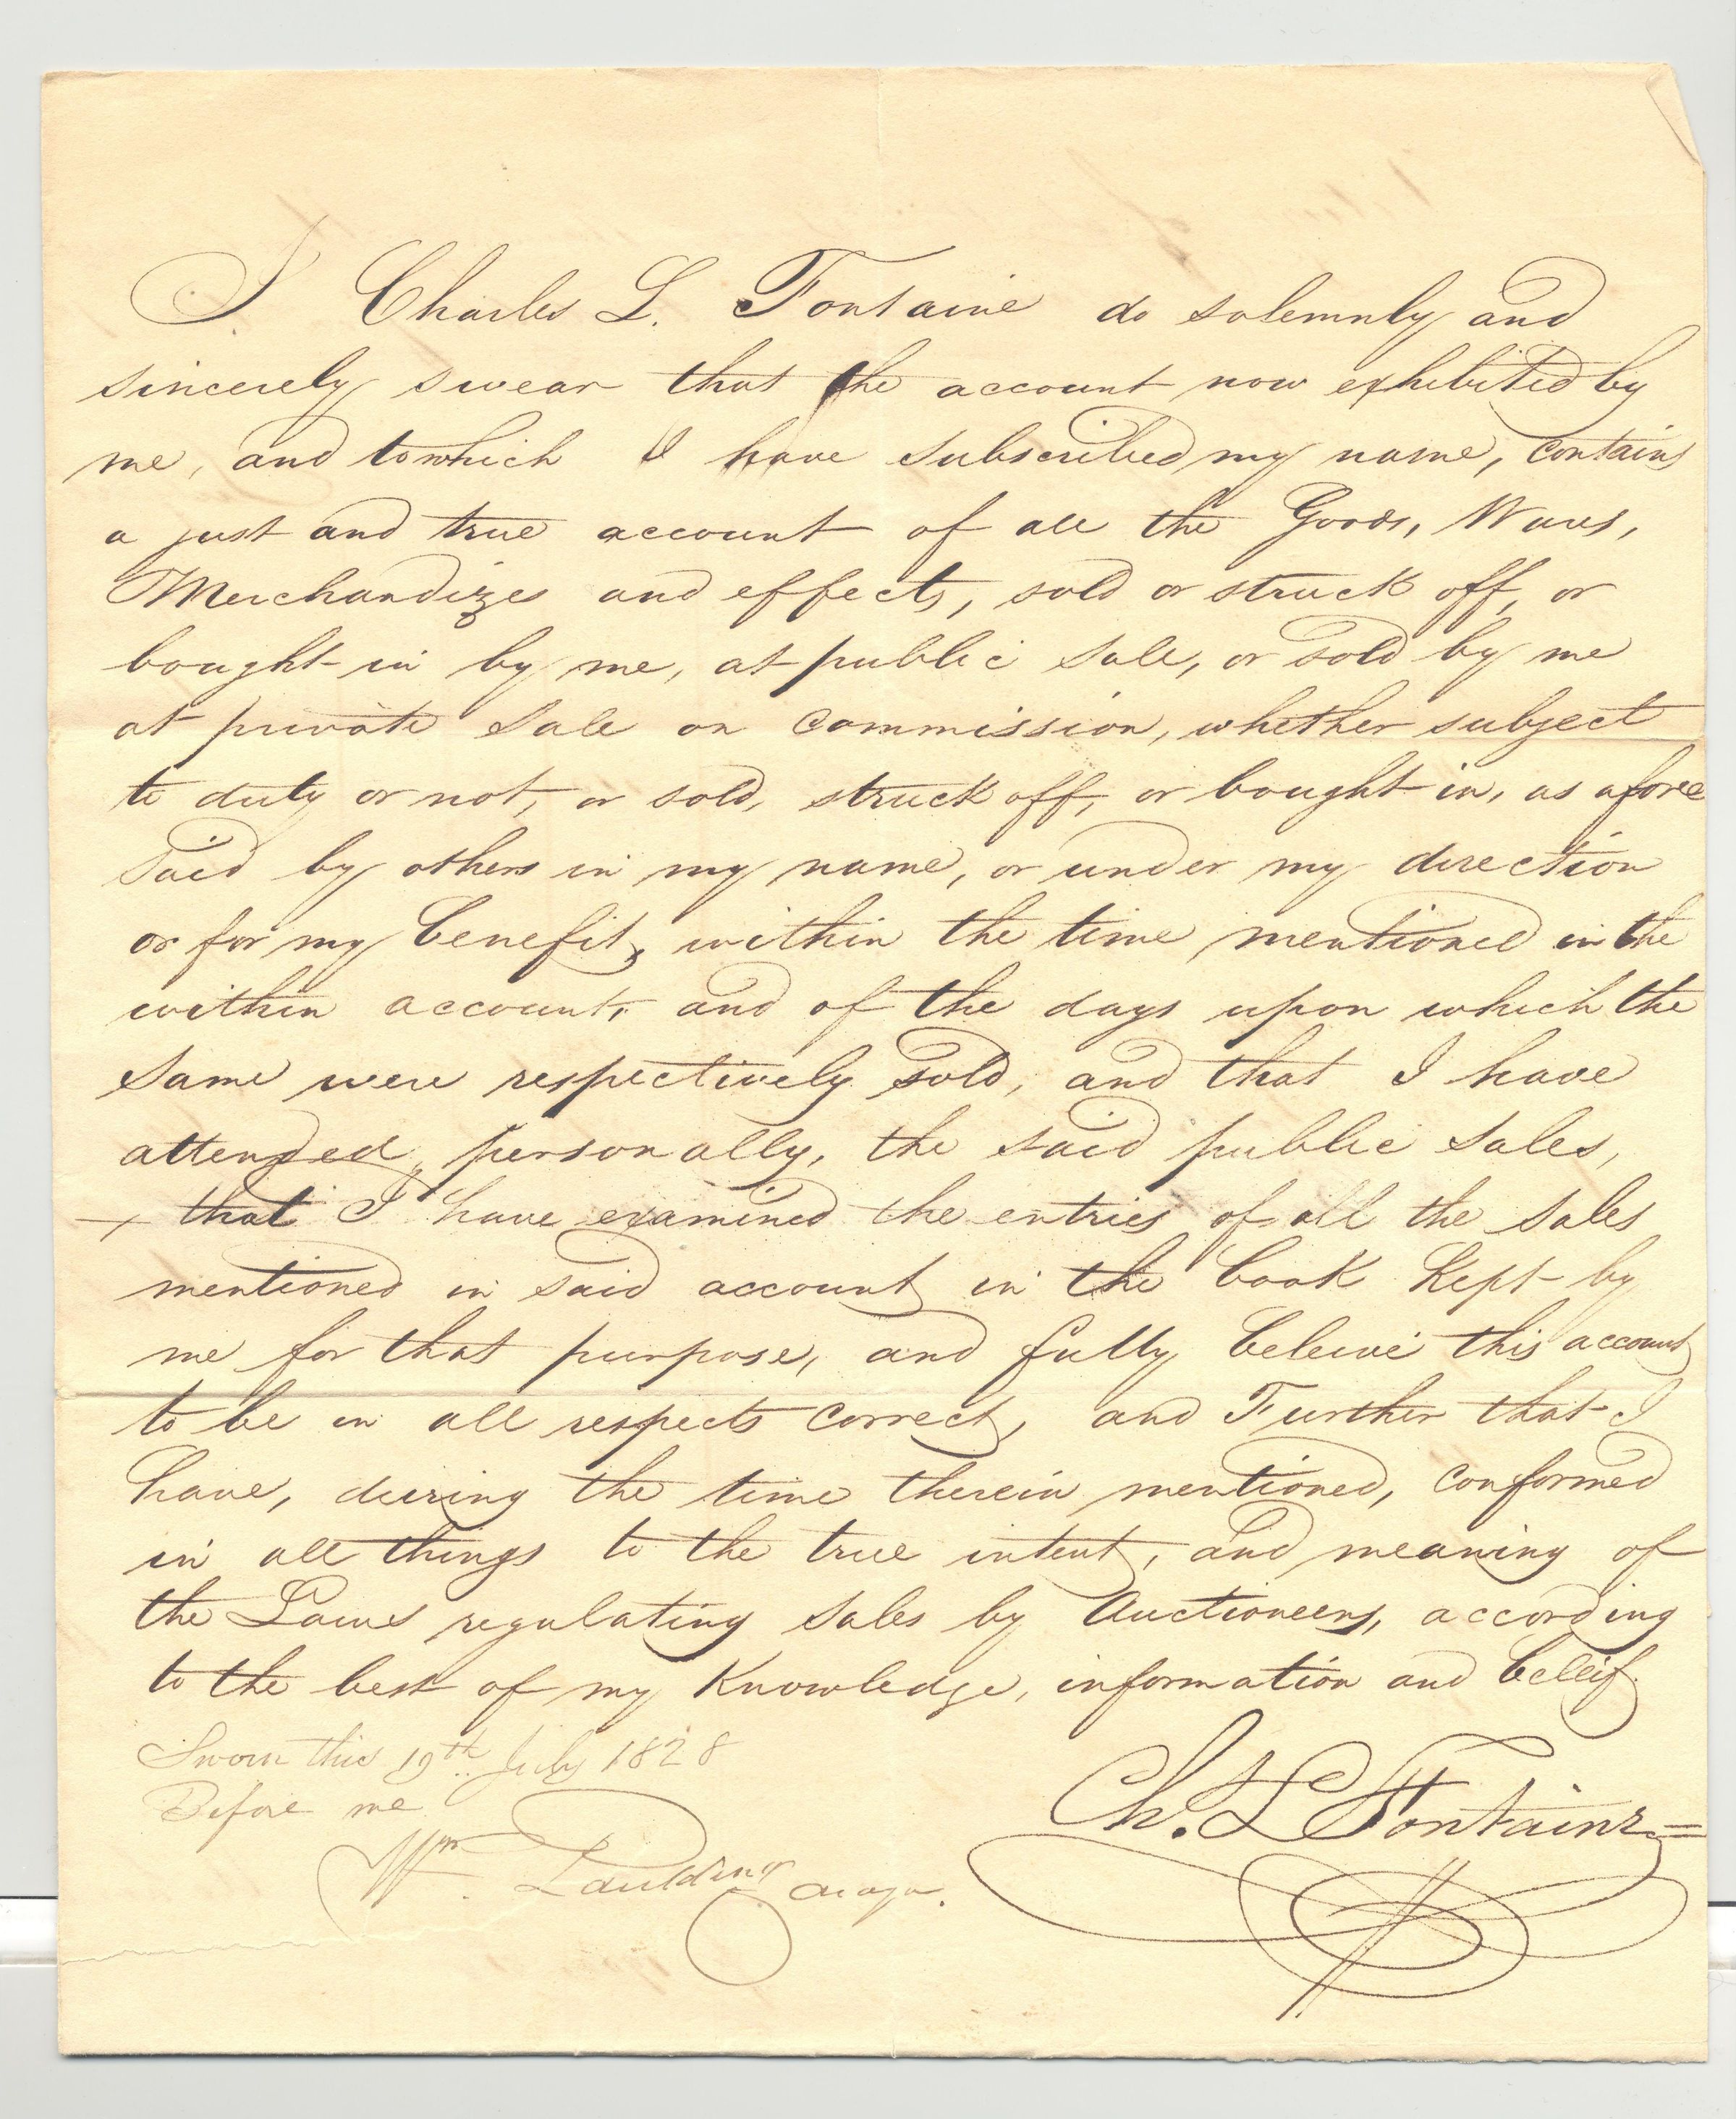 I Charles L. Fontaine do solemnly and
sincerely swear that the account now exhibited by
me, and to which I have subscribed my name, contains
a just and true account of all the Goods, Wares,
Merchandizes and effects, sold or struck off, or
bought in by me, at public sale, or sold by me
at private sale on commission, whether subject
to duty or not, or sold, struck off, or bought in, as afore
said by others in my name, or under my direction
or for my benefit, within the time mentioned in the
within account, and of the days upon which the
same were respectively sold, and that I have
attended, personally, the said public sales,
+ that I have examined the entries of all the sales
mentioned in said account in the book kept by
me for that purpose, and fully beleive this account
to be in all respects correct, and Further that I
have, during the time therein mentioned, conformed
in all things to the true intent, and meaning of
the Laws regulating sales by Auctioneers, according
to the best of my Knowledge, information and beleif.
Sworn this 19th. July 1828
Before me
Ch. L Fontaine=
Wm. Paulding Mayor.